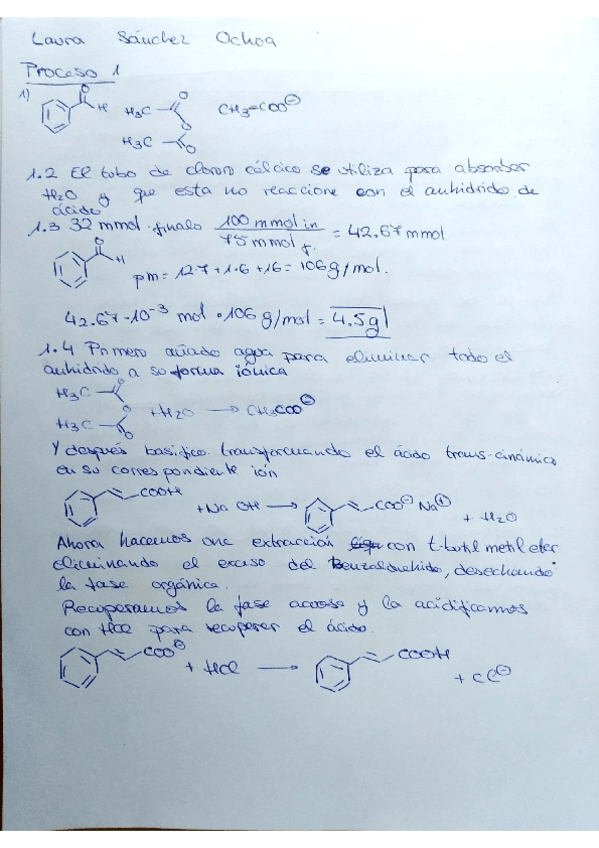 Laura Sánchez Ochoa
Proceso 1
1)
O
H
H3C
O
O
H3C
O
CH3-COO⊖
1.2 El tubo de cloruro cálcico se utiliza para absorber
H2O y que esta no reaccione con el anhidrido de
ácido
1.3 32 mmol finales 100 mmol in / 75 mmol f. = 42.67 mmol
O
H
pm = 12·7 + 1·6 + 16 = 106 g/mol.
42.67·10⁻³ mol · 106 g/mol = 4.5 g
1.4 Primero añado agua para eliminar todo el
anhidrido a su forma iónica
H3C
O
O
H3C
O
+ H2O → CH3COO⊖
Y después basifico transformando el ácido trans-cinámico
en su correspondiente ión
COOH
+ Na OH →
COO⊖ Na⊕
+ H2O
Ahora hacemos una extracción con t-butil metil eter
eliminando el exceso del Benzaldehido, desechando
la fase orgánica.
Recuperamos la fase acuosa y la acidificamos
con HCl para recuperar el ácido.
COO⊖
+ HCl →
COOH
+ Cl⊖